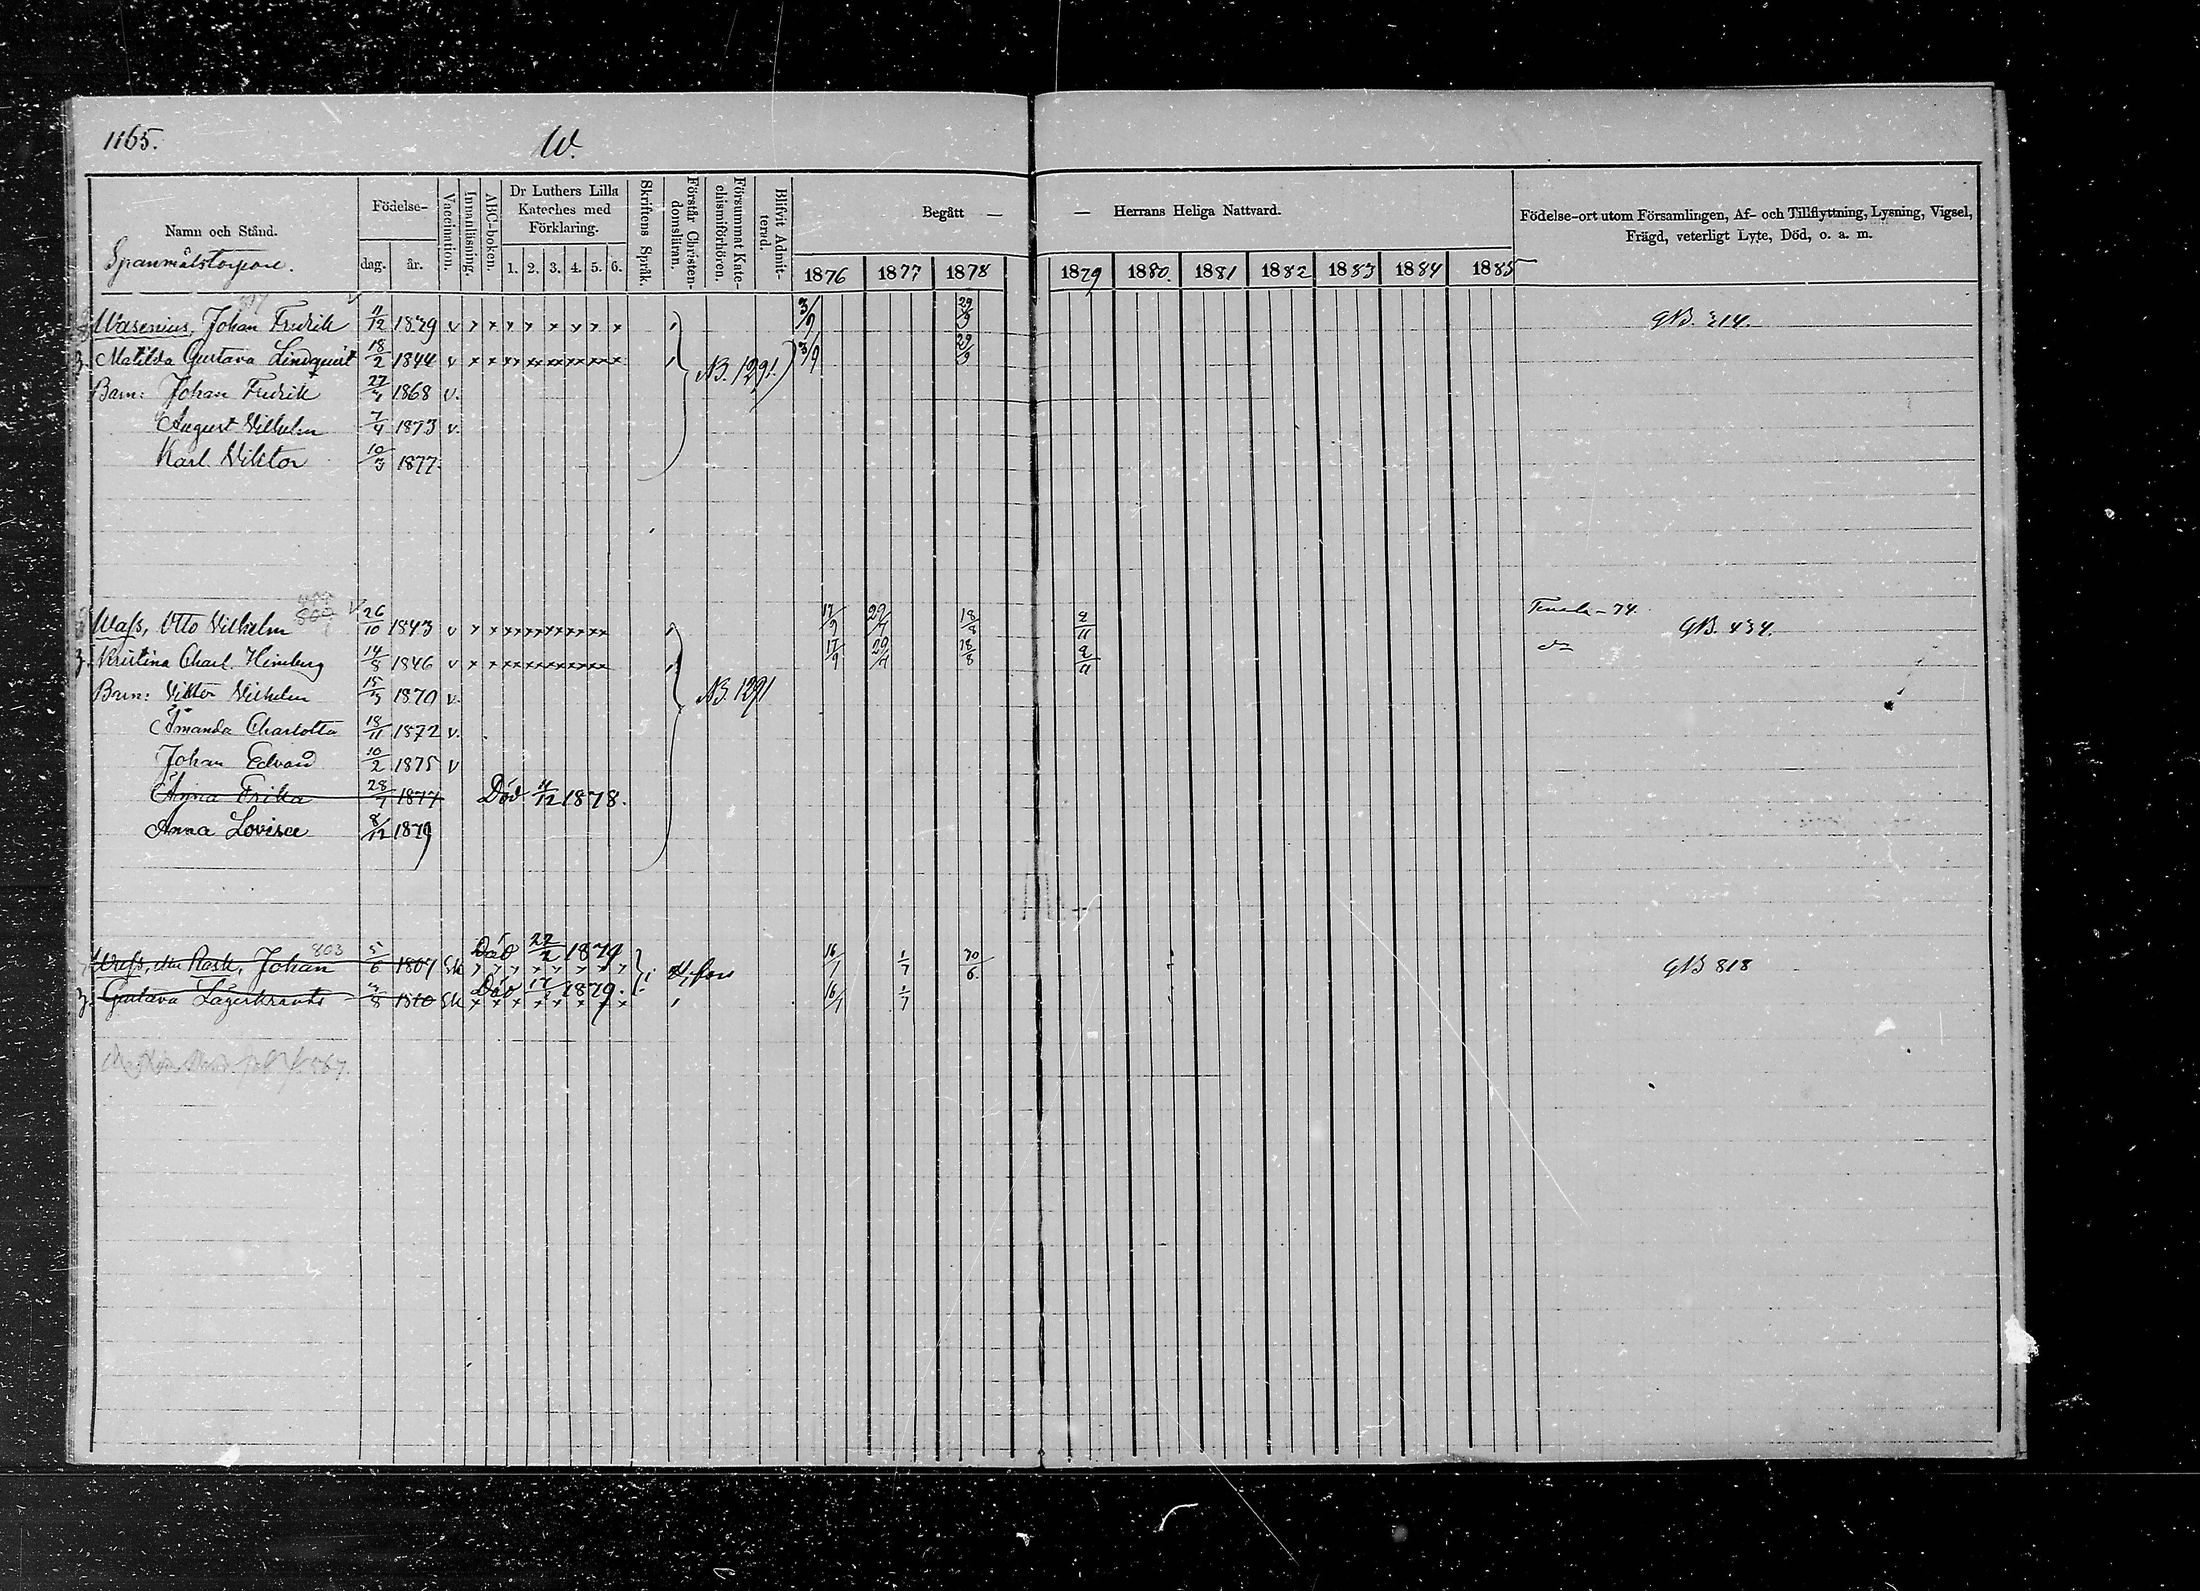 1165. W.
Namn och Stånd.
Födelse-
dag. år.
Vaccination.
Innanläsning.
ABC-boken.
Dr Luthers Lilla Kateches med Förklaring.
1. 2. 3. 4. 5. 6.
Skriftens Språk.
Förstår Christendomsläran.
Försummat Katechismiförhören.
Blifvit Admitterad.
Begått — — Herrans Heliga Nattvard.
1876 1877 1878 1879 1880. 1881 1882 1883 1884 1885
Födelse-ort utom Församlingen, Af- och Tillflyttning, Lysning, Vigsel,
Frägd, veterligt Lyte, Död, o. a. m.
Spanmålstorpare.
Wasenius, Johan Fredrik 11/12 1839 v x x x x x x x x 3/9 29/9 GB. 314.
Matilda Gustava Lindqvist 18/2 1844 v 3/9 29/9
NB. 1291.
Barn: Johan Fredrik 1868 v.
August Vilhelm 7/4 1873 v.
Karl Viktor 10/3 1877.
Wass, Otto Vilhelm 26/10 1843 v 17/9 29/7 18/8 2/11 Tenala - 74. GB. 434.
Kristina Charl. Himberg 14/8 1846 v 17/9 29/7 18/8 2/11 do
Barn: Viktor Vilhelm 15/3 1870 v.
NB. 1291
Amanda Charlotta 18/11 1872 v.
Johan Edvard 10/2 1875 v
Anna Erika 28/7 1877 Död 11/12 1878.
Anna Lovisa 8/12 1879
803
Wass, Rask, Johan 5/6 1807 Sk Död 22/2 1879 16/7 1/7 30/6. GB 818
Gustava Lagerkrants 3/8 1810 Sk Död 1879. 16/7 1/7